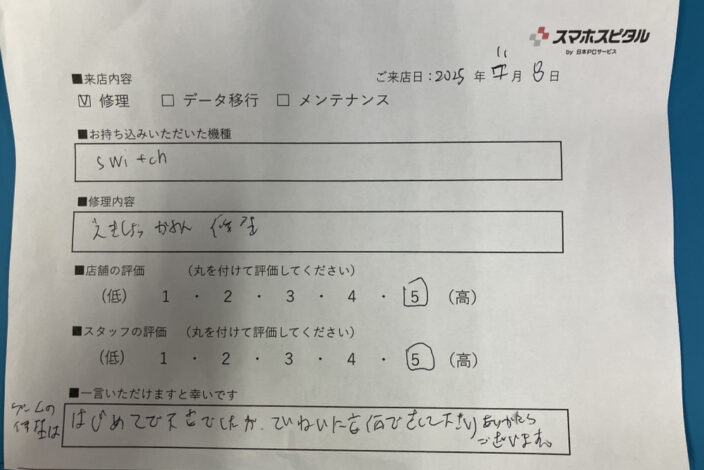 スマホスピタル
by 日本PCサービス
■来店内容
ご来店日：2025年 11月 8日
修理 □ データ移行 □ メンテナンス
■お持ち込みいただいた機種
switch
■修理内容
修理
■店舗の評価 （丸を付けて評価してください）
（低） 1 ・ 2 ・ 3 ・ 4 ・ 5 （高）
■スタッフの評価 （丸を付けて評価してください）
（低） 1 ・ 2 ・ 3 ・ 4 ・ 5 （高）
■一言いただけますと幸いです
ゲームの
修理は
はじめてで不安でしたが、ていねいに ありがとう
ございます。